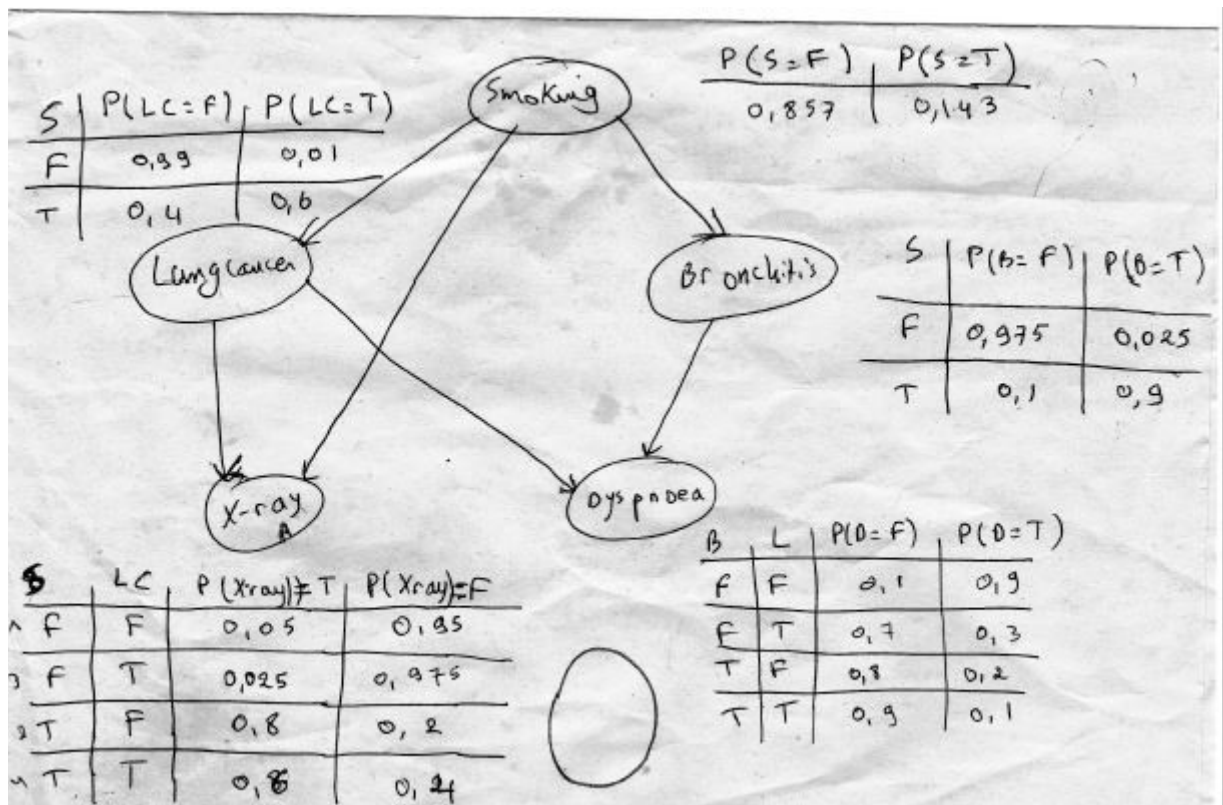 P(S=F) P(S=T)
0,857 0,143
Smoking
S P(LC=F) P(LC=T)
F 0,99 0,01
T 0,4 0,6
Lung Cancer
Bronchitis
S P(B=F) P(B=T)
F 0,975 0,025
T 0,1 0,9
X-ray
Dyspnoea
LC P(Xray)=T P(Xray)=F
F F 0,05 0,95
F T 0,025 0,975
T F 0,8 0,2
T T
B L P(D=F) P(D=T)
F F 0,1 0,9
F T 0,7 0,3
T F 0,8 0,2
T T 0,9 0,1